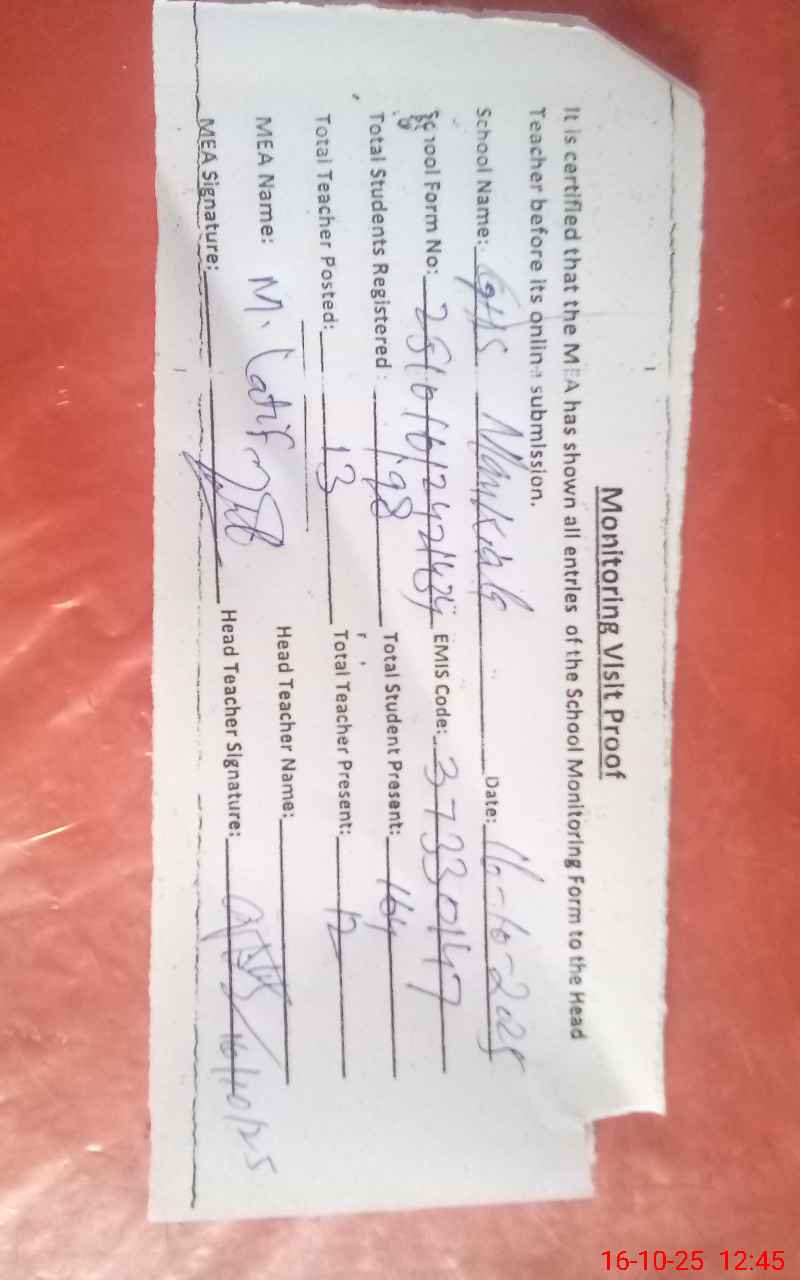 Monitoring Visit Proof
It is certified that the MEA has shown all entries of the School Monitoring Form to the Head
Teacher before its online submission.
School Name: GHS Date: 16-10-2025
School Form No: EMIS Code: 37330147
Total Students Registered: 198 Total Student Present: 164
Total Teacher Posted: 13 Total Teacher Present: 12
MEA Name: M. Latif Head Teacher Name:
MEA Signature: Head Teacher Signature: 16/10/25
16-10-25 12:45